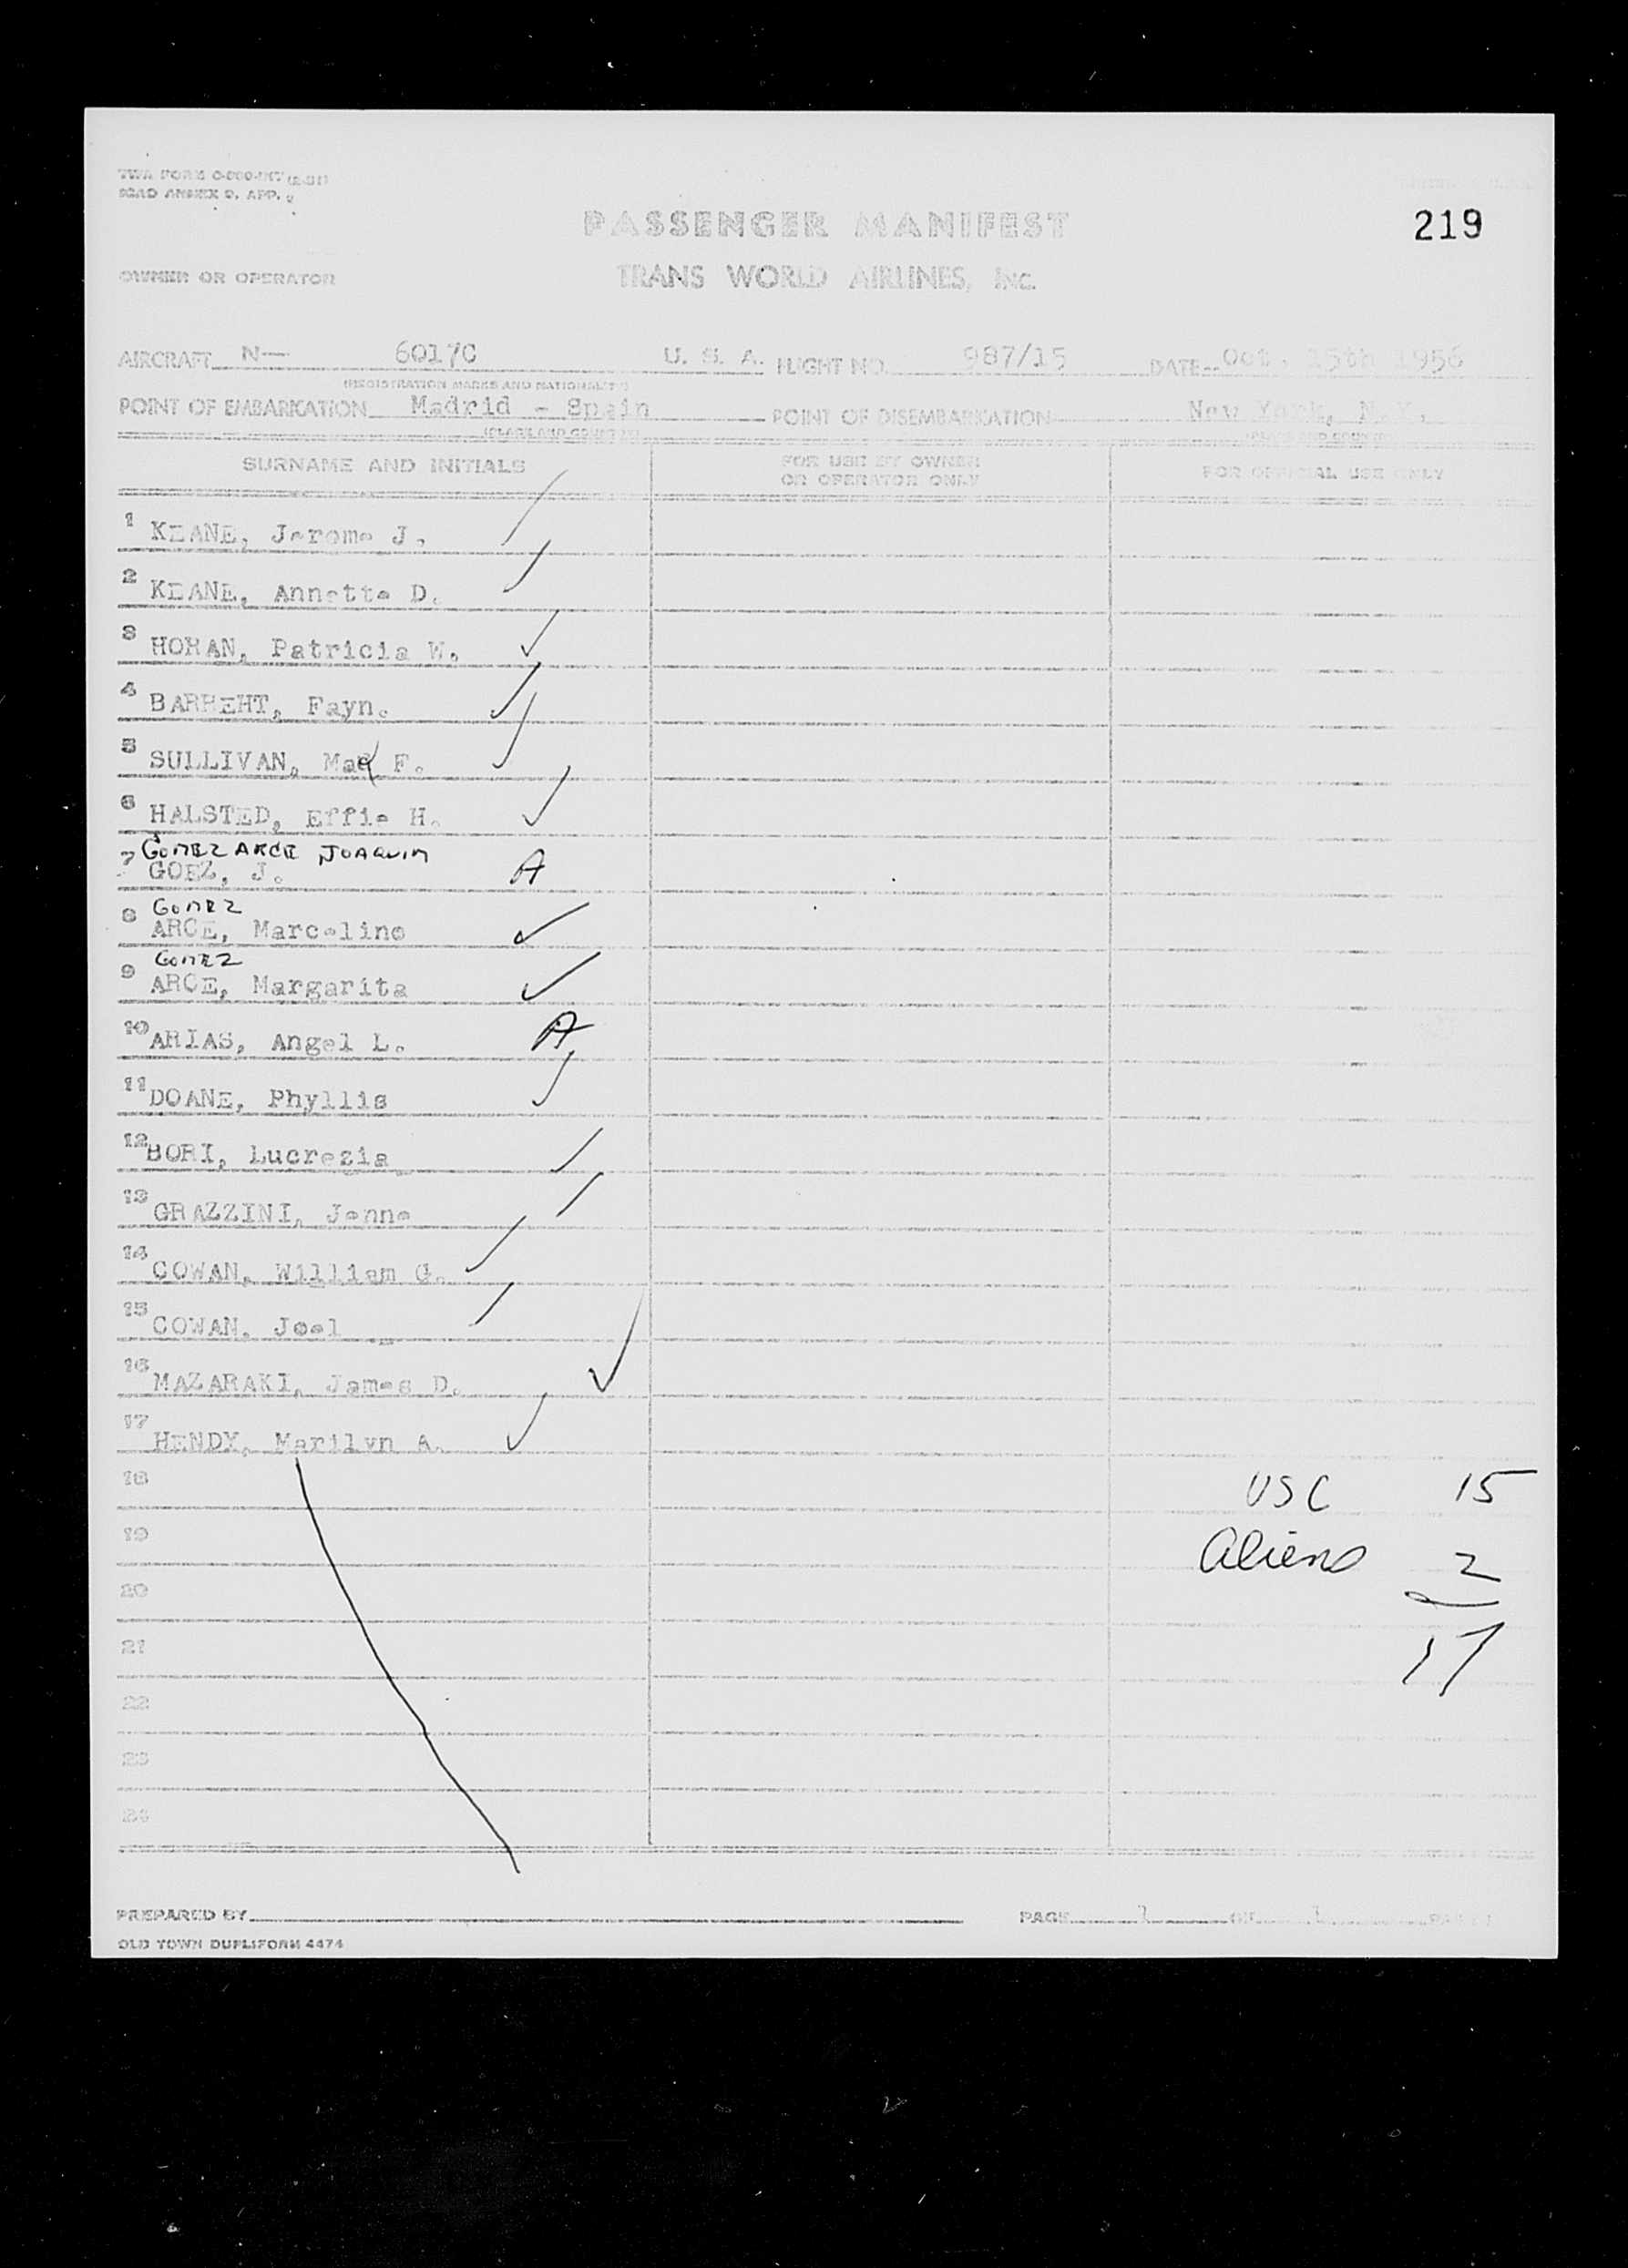 TWA FORM
ICAO ANNEX 9, APP.
PASSENGER MANIFEST
219
OWNER OR OPERATOR
TRANS WORLD AIRLINES, INC.
AIRCRAFT N— 6017C U. S. A. FLIGHT NO. 987/15 DATE Oct. 15th 1956
(REGISTRATION MARKS AND NATIONALITY)
POINT OF EMBARKATION Madrid - Spain POINT OF DISEMBARKATION New York, N.Y.
(PLACE AND COUNTRY) (PLACE AND COUNTRY)
SURNAME AND INITIALS FOR USE BY OWNER OR OPERATOR ONLY FOR OFFICIAL USE ONLY
1 KEANE, Jerome J.
2 KEANE, Annette D.
3 HORAN, Patricia W.
4 BARREHT, Fayn.
5 SULLIVAN, Mae F.
6 HALSTED, Effie H.
GOMEZ ARCE JOAQUIN
7 GOEZ, J. A
GOMEZ
8 ARCE, Marcelino
GOMEZ
9 ARCE, Margarita
10 ARIAS, Angel L. A
11 DOANE, Phyllis
12 BORI, Lucrezia
13 GRAZZINI, Jenne
14 COWAN, William G.
15 COWAN, Joel
16 MAZARAKI, James D.
17 HENDY, Marilyn A.
18 USC 15
19 Aliens 2
20
21 17
22
23
24
PREPARED BY PAGE 1 OF 1 PAGES
OLD TOWN DUPLIFORM 4474